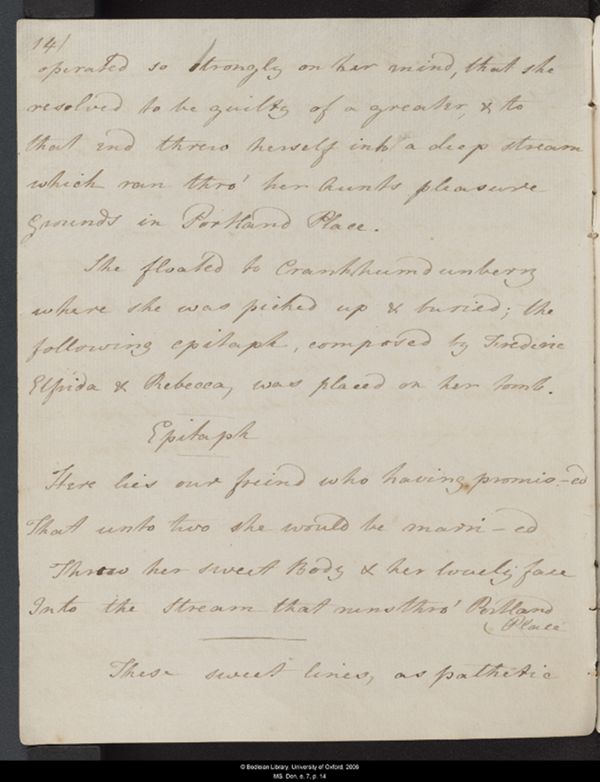 14/
operated so strongly on her mind, that she
resolved to be guilty of a greater, & to
that end threw herself into a deep stream
which ran thro' her Aunts pleasure
Grounds in Portland Place.
She floated to Crankhumdunberry
where she was picked up & buried; the
following epitaph, composed by Frederic
Elfrida & Rebecca, was placed on her tomb.
Epitaph
Here lies our freind who having promis-ed
That unto two she would be marri-ed
Threw her sweet Body & her lovely face
Into the Stream that runs thro' Portland
Place
These sweet lines, as pathetic
© Bodleian Library, University of Oxford, 2006
MS. Don. e. 7, p. 14